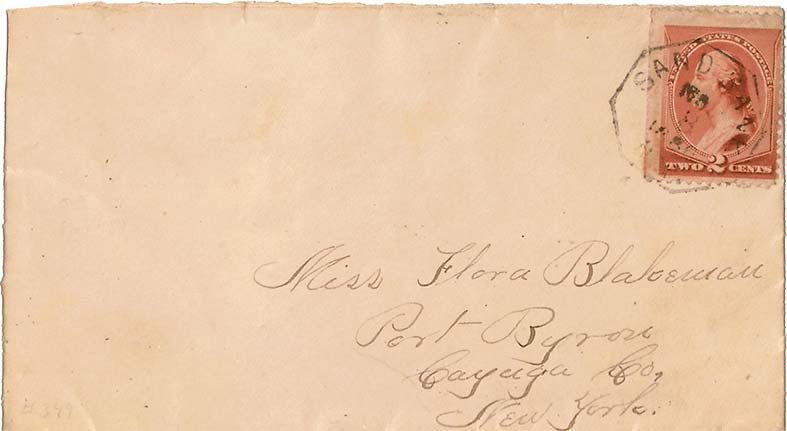 UNITED STATES POSTAGE
TWO 2 CENTS
Miss Flora Blakeman
Port Byron
Cayuga Co,
New York.
#399